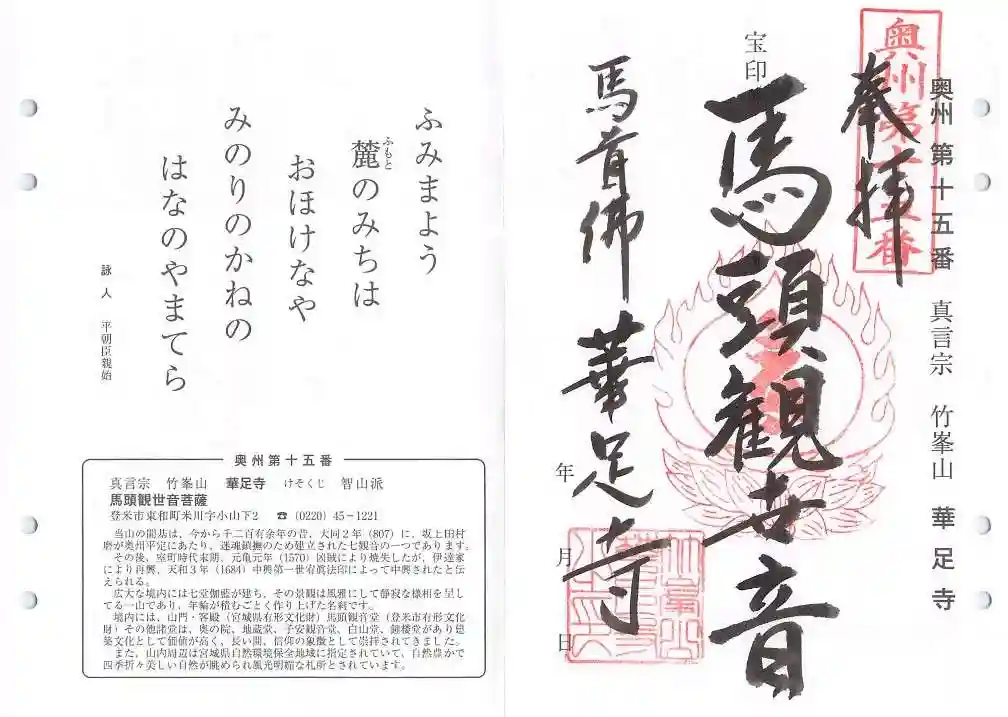 奥州第十五番 真言宗 竹峯山 華足寺
奥州第十五番
奉拝
宝印
馬頭観世音
馬首佛 華足寺
年 月 日
ふみまよう
麓のみちは
ふもと
おほけなや
みのりのかねの
はなのやまてら
詠人 平朝臣親始
奥州第十五番
真言宗 竹峯山 華足寺 けそくじ 智山派
馬頭観世音菩薩
登米市東和町米川字小山下2 ☎ (0220) 45−1221
当山の開基は、今から千二百有余年の昔、大同2年(807)に、坂上田村
磨が奥州平定にあたり、迷魂鎮撫のため建立された七観音の一つであります。
その後、室町時代末期、元亀元年(1570)凶賊により焼失したが、伊達家
により再興、天和3年(1684)中興第一世宥眞法印によって中興されたと伝
えられる。
広大な境内には七堂伽藍が建ち、その景観は風雅にして静寂な様相を呈し
てる一山であり、年輪が積むごとく作り上げた名刹です。
境内には、山門・客殿(宮城県有形文化財)馬頭観音堂(登米市有形文化
財)その他諸堂は、奥の院、地蔵堂、子安観音堂、白山堂、鐘楼堂があり建
築文化として価値が高く、長い間、信仰の象徴として崇拝されてきました。
また、山内周辺は宮城県自然環境保全地域に指定されていて、自然豊かで
四季折々美しい自然が眺められ風光明媚な札所とされています。